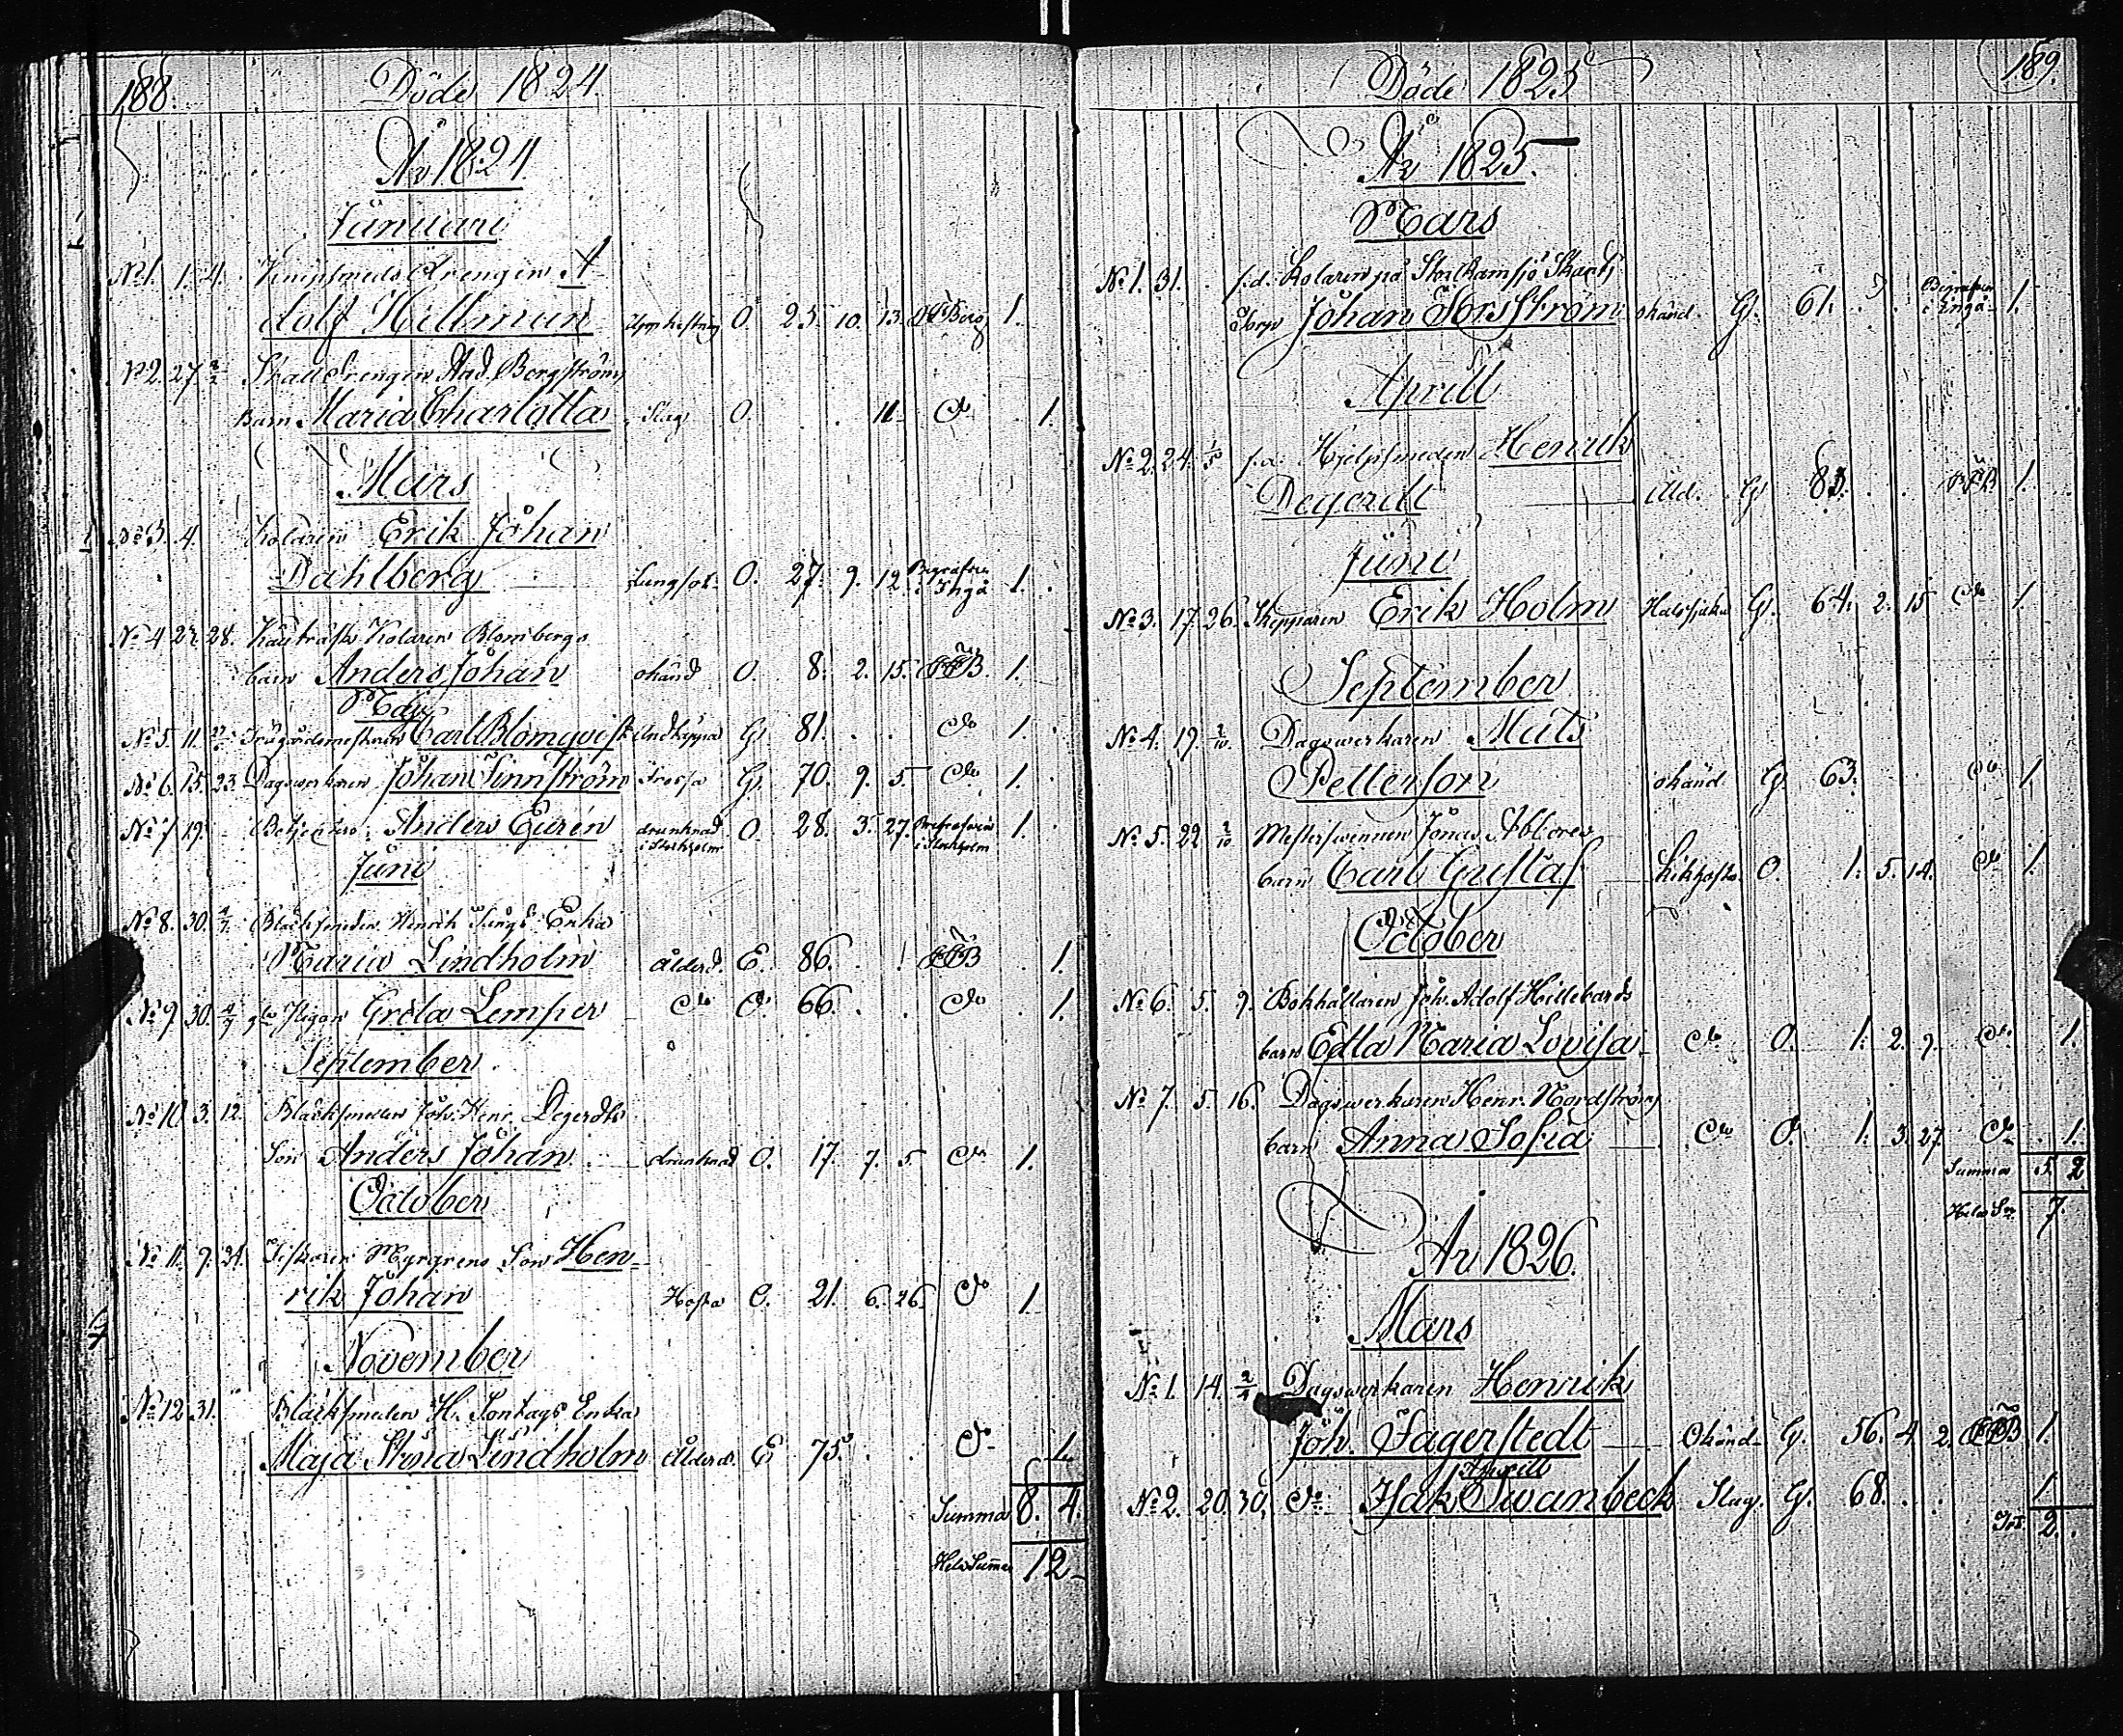 188.
Döde 1824
År 1824
Januari
No 1. 1. 4. Knipsmeds Drengen A-
dolf Hellman O. 25. 10. 13. 1.
No 2. 27 Stall Drengen And. Bergströms
Barn Maria Charlotta Slag O. 11 do 1.
Mars
No 3. 4. Kolaren Erik Johan
Dahlberg Lungsot O. 27. 9. 12. Begrafven i Ingå 1.
No 4 22. 28. Kolaren Blombergs
barn Anders Johan okänd O. 8. 2. 15. 1.
Maj
No 5. 11. Trägårdsmestaren Carl Blomqvist Andtäppa G. 81. do 1.
No 6. 15. 23. Dagsverkaren Johan Finnström Frossa G. 70. 9. 5. do 1.
No 7 19. Betjenten Anders Eurén drunknad i Stockholm O. 28. 3. 27. Begrafven i Stockholm 1.
Juni
No 8. 30. Bläcksmeden Henrik Enka
Maria Lindholm ålderd. E. 86. 1.
No 9. 30. gla Pigan Greta Lemper do O. 66. do 1.
September
No 10. 3. 12. Bläcksmeden Joh. Henr. Degerdts
Son Anders Johan drunknad O. 17. 7. 5. do 1.
October
No 11. 9. 24. Fiskaren Myrgrens Son Hen-
rik Johan Hosta O. 21. 6. 26. do 1.
November
No 12 31. Bläcksmeden H. Sontags Enka
Maja Stina Lindholm Ålderd. E 75. do 1.
Summa 8. 4.
Hela Summa 12
189.
Döde 1825
År 1825.
Mars
No 1. 31. f.d. Kolaren på Storramsjö Skarts
Torp Johan Forsström okänd. G. 61. Begrafven i Ingå 1.
Aprill
No 2. 24. f.d. Hjelpsmeden Henrik
Degerdt Åld. G. 83. 1.
Juni
No 3. 17. 26. Skepparen Erik Holm Halssjuka G. 64. 2. 15 do 1.
September
No 4. 19. 2/10 Dagsverkaren Mats
Petterson okänd G. 63. do 1.
No 5. 22 2/10 Mestersvennen Jonas Abborres
barn Carl Gustaf Kikhosta O. 1. 5. 14. do 1.
October
No 6. 5. 9. Bokhållaren Joh. Adolf Hillebards
barn Edla Maria Lovisa do O. 1. 2. 9. do 1.
No 7. 5. 16. Dagsverkaren Henr. Nordströms
barn Anna Sofia do O. 1. 3. 27. do 1.
Summa 5. 2
Hela Sa 7.
År 1826.
Mars
No 1. 14. 2/4 Dagsverkaren Henrik
Joh. Fagerstedt Okänd G. 56. 4 2. 1.
Aprill
No 2. 20. 30. do Isak Swanbeck Slag. G. 68. 1.
Tot 2.